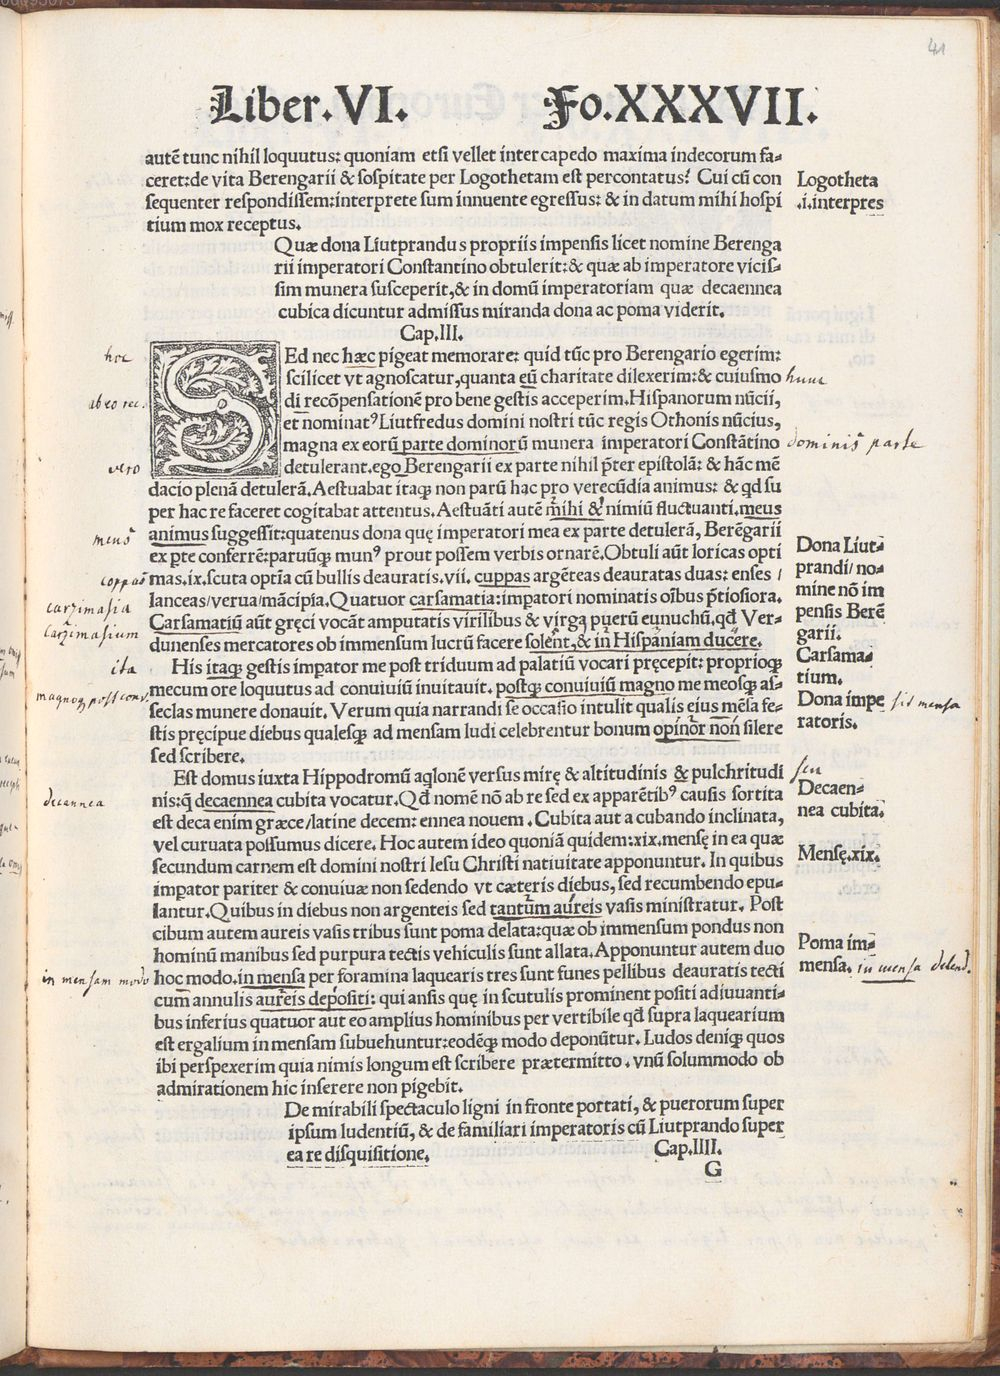 41
Liber.VI. Fo.XXXVII.
autē tunc nihil loquutus: quoniam etsi vellet intercapedo maxima indecorum fa-
ceret: de vita Berengarii & sospitate per Logothetam est percontatus? Cui cū con
sequenter respondissem: interprete sum innuente egressus: & in datum mihi hospi
tium mox receptus.
Logotheta
.i. interpres
Quæ dona Liutprandus propriis impensis licet nomine Berenga
rii imperatori Constantino obtulerit: & quæ ab imperatore vicis-
sim munera susceperit, & in domū imperatoriam quæ decaennea
cubica dicuntur admissus miranda dona ac poma viderit.
Cap.III.
SEd nec hæc pigeat memorare: quid tūc pro Berengario egerim:
scilicet vt agnoscatur, quanta eū charitate dilexerim: & cuiusmo
di recōpensationē pro bene gestis acceperim. Hispanorum nūcii,
et nominatꝰ Liutfredus domini nostri tūc regis Othonis nūcius,
magna ex eorū parte dominorū munera imperatori Constātino
detulerant. ego Berengarii ex parte nihil p̄ter epistolā: & hāc mē
dacio plenā detulerā. Aestuabat itaqꝫ non parū hac pro verecūdia animus: & qd su
per hac re faceret cogitabat attentus. Aestuāti autē mihi & nimiū fluctuanti. meus
animus suggessit: quatenus dona quę imperatori mea ex parte detulerā, Berēgarii
ex pte conferrē: paruūqꝫ munꝰ prout possem verbis ornarē. Obtuli aūt loricas opti
mas.ix. scuta optīa cū bullis deauratis.vii. cuppas argēteas deauratas duas: enses /
lanceas/verua/mācipia. Quatuor carsamatia: impatori nominatis oībus p̄tiosiora.
Carsamatiū aūt gręci vocāt amputatis virilibus & virga puerū eunuchū. qd̄ Ver-
dunenses mercatores ob immensum lucrū facere solent, & in Hispaniam ducere.
hoc
ab eo rec.
vero
mens
coppas
carzimasia
carzimasium
hunc
dominis parte
Dona Liut-
prandi/ no-
mine nō im
pensis Berē
garii.
Carsama-
tium.
His itaqꝫ gestis impator me post triduum ad palatiū vocari pręcepit: proprioqꝫ
mecum ore loquutus ad conuiuiū inuitauit. postqꝫ conuiuiū magno me meosqꝫ as-
seclas munere donauit. Verum quia narrandi se occasio intulit qualis eius mēsa fe-
stis pręcipue diebus qualesqꝫ ad mensam ludi celebrentur bonum opinor non silere
sed scribere.
ita
magnoqꝫ post conv.
Dona impe
ratoris.
sit mensa
Est domus iuxta Hippodromū aqlonē versus mirę & altitudinis & pulchritudi
nis: q̄ decaennea cubita vocatur. Qd̄ nomē nō ab re sed ex apparētibꝰ causis sortita
est deca enim græce/latine decem: ennea nouem. Cubita aut a cubando inclinata,
vel curuata possumus dicere. Hoc autem ideo quoniā quidem: xix. mensę in ea quæ
secundum carnem est domini nostri Iesu Christi natiuitate apponuntur. In quibus
impator pariter & conuiuæ non sedendo vt cæteris diebus, sed recumbendo epu-
lantur. Quibus in diebus non argenteis sed tantum aureis vasis ministratur. Post
cibum autem aureis vasis tribus sunt poma delata: quæ ob immensum pondus non
hominū manibus sed purpura tectis vehiculis sunt allata. Apponuntur autem duo
hoc modo. in mensa per foramina laquearis tres sunt funes pellibus deauratis tecti
cum annulis aureis depositi: qui ansis quę in scutulis prominent positi adiuuanti-
bus inferius quatuor aut eo amplius hominibus per vertibile qd̄ supra laquearium
est ergalium in mensam subuehuntur: eodēqꝫ modo deponūtur. Ludos deniqꝫ quos
ibi perspexerim quia nimis longum est scribere prætermitto. vnū solummodo ob
admirationem hic inserere non pigebit.
decennea
in mensam modo
seu
Decaen-
nea cubita.
Mensę.xix.
Poma im-
mensa.
in mensa delend.
De mirabili spectaculo ligni in fronte portati, & puerorum super
ipsum ludentiū, & de familiari imperatoris cū Liutprando super
ea re disquisitione. Cap.IIII.
G